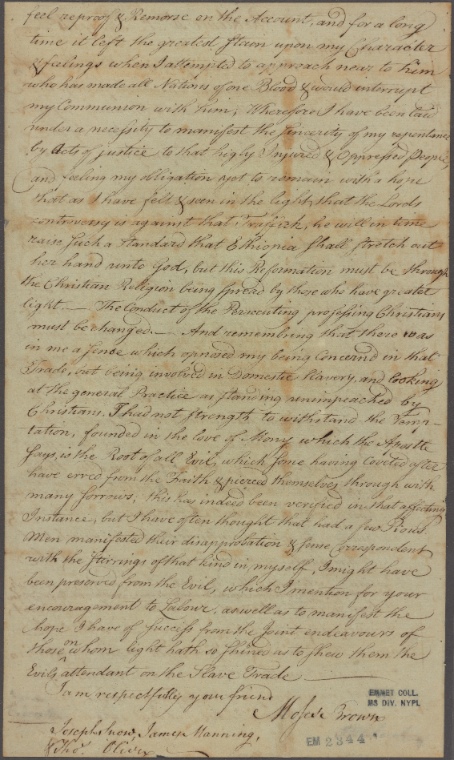 feel reproof & Remorse on the Account, and for a long
time it left the greatest stain upon my Character
& feelings when I attempted to approach near to him
who has made all Nations of one Blood & would interrupt
my Communion with him; Wherefore I have been laid
under a necessity to manifest the sincerity of my repentance
by Acts of justice to that highly Injured & Oppressed People,
and feeling my obligation yet to remain with a hope
that as I have felt & seen in the light, that the Lords
controversy is against that Traffick, he will in time
raise such a standard that Ethiopia shall stretch out
her hand unto God, but this Reformation must be through
the Christian Religion being spread by those who have greater
light. — The Conduct of the Persecuting professing Christians
must be changed. — And remembering that there was
in me a sense which opposed my being Concerned in that
Trade, but being involved in Domestic Slavery, and looking
at the general Practice as standing unimpeached by
Christians, I had not strength to withstand the Temp-
tation, founded in the love of Money which the Apostle
says, is the Root of all Evil, which some having Coveted after
have erred from the Faith & pierced themselves through with
many sorrows; this has indeed been verified in that affecting
Instance, but I have often thought that had a few Pious
Men manifested their disapprobation & sense Correspondent
with the stirrings of that kind in myself, I might have
been preserved from the Evil, which I mention for your
encouragement to Labour, as well as to manifest the
hope I have of success from the Joint endeavours of
those on whom light hath so shined as to shew them the
Evils attendant on the Slave Trade —
I am respectfully your friend
Moses Brown
Joseph Snow, James Manning,
& Tho. Oliver
EMMET COLL.
MS DIV. NYPL
EM 2344